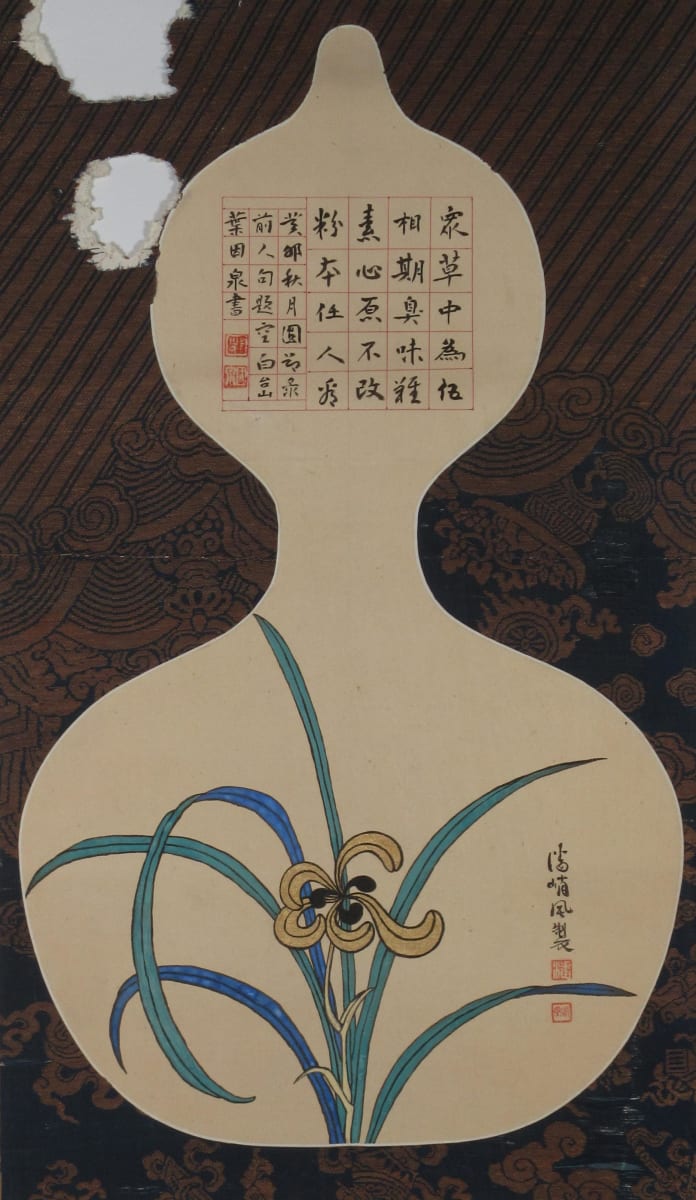 眾草中為伍
相期臭味難
素心原不改
粉本任人看
癸卯秋月圓節录
前人句題空白
葉因泉書
潘峭風製